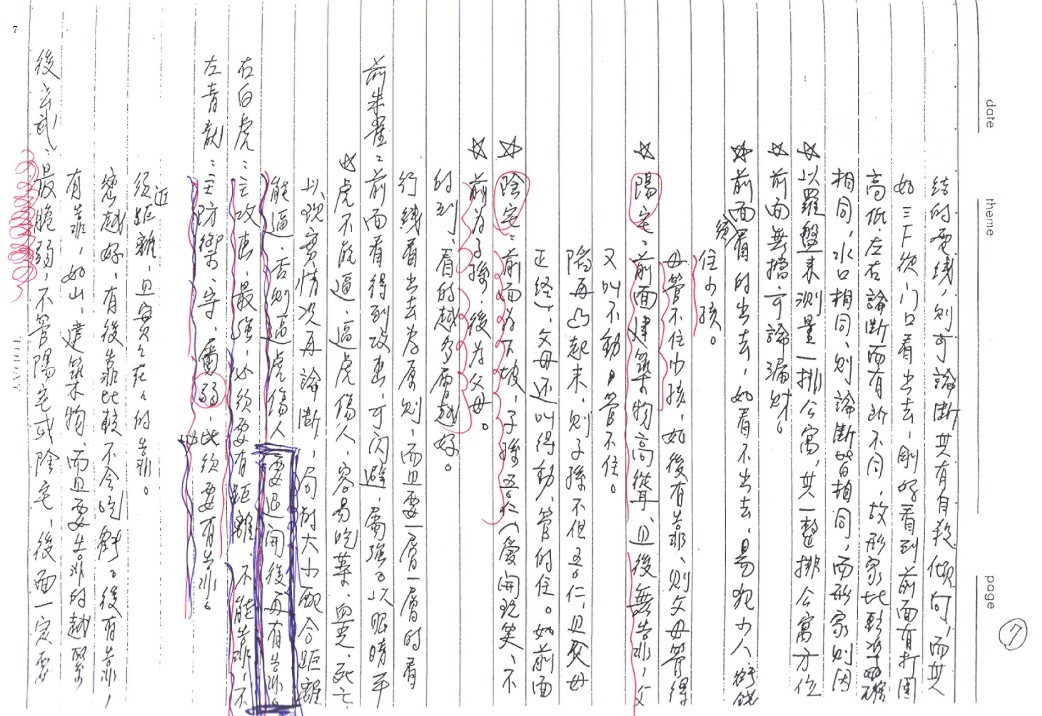 結的區域，則可論斷其有自殺傾向，而其
如三F於門口看出去，剛好看到前面有打固
高低左右論斷而有所不同，故形家比較準確
相同，水口相同，則論斷皆相同，而形家則因
☆以羅盤來測量一排公寓，其一整排公寓方位
☆前面無擋，可論漏財。
☆前面看的出去，如看不出去，易犯小人
住小孩。
母管不住小孩，如後有靠，則父母管得
☆陽宅：前面建築物高聳，且後無靠，父
又叫不動，管不住。
陷再凸起來，則子孫不但吾仁，且父母
正經，父母还叫得動，管的住。如前面
☆陰宅：前面为下坡，子孫吾仁(愛開玩笑、不
☆前为子孫，後为父母。
的到，看的越多層越好。
行綫看出去为原則，而且要一層一層的看
前朱雀：前面看得到攻击，可闪避，屬強。以眼睛平
☆虎不能逼，逼虎傷人，容易吃藥、血光、死亡
以現實情况再論斷，局的大小配合距離
能逼，否則逼虎傷人 要退開後再有靠。
右白虎：主攻击，最強，必須要有距離，不能靠，不
左青龍：主防禦、守，屬弱，必須要有靠。
須近距離，且實实在在的靠。
密越好，有後靠比較不会吃虧。後有靠，
有靠，如山，建築物，而且要靠的越緊
後玄武：最脆弱，不管陽宅或陰宅，後面一定要
date
theme
page
TODAY
7
7